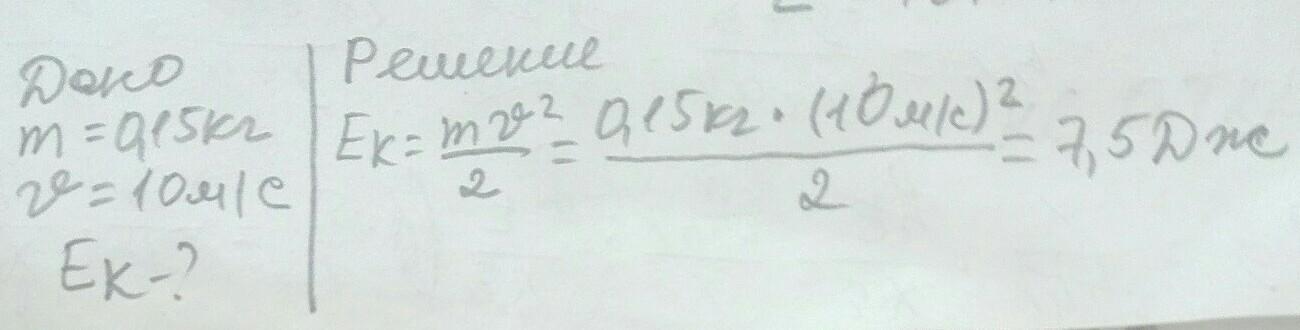 Дано
m = 0,15кг
υ = 10м/с
Eк - ?
Решение
Eк = mυ²/2 = 0,15кг · (10м/с)²/2 = 7,5Дж